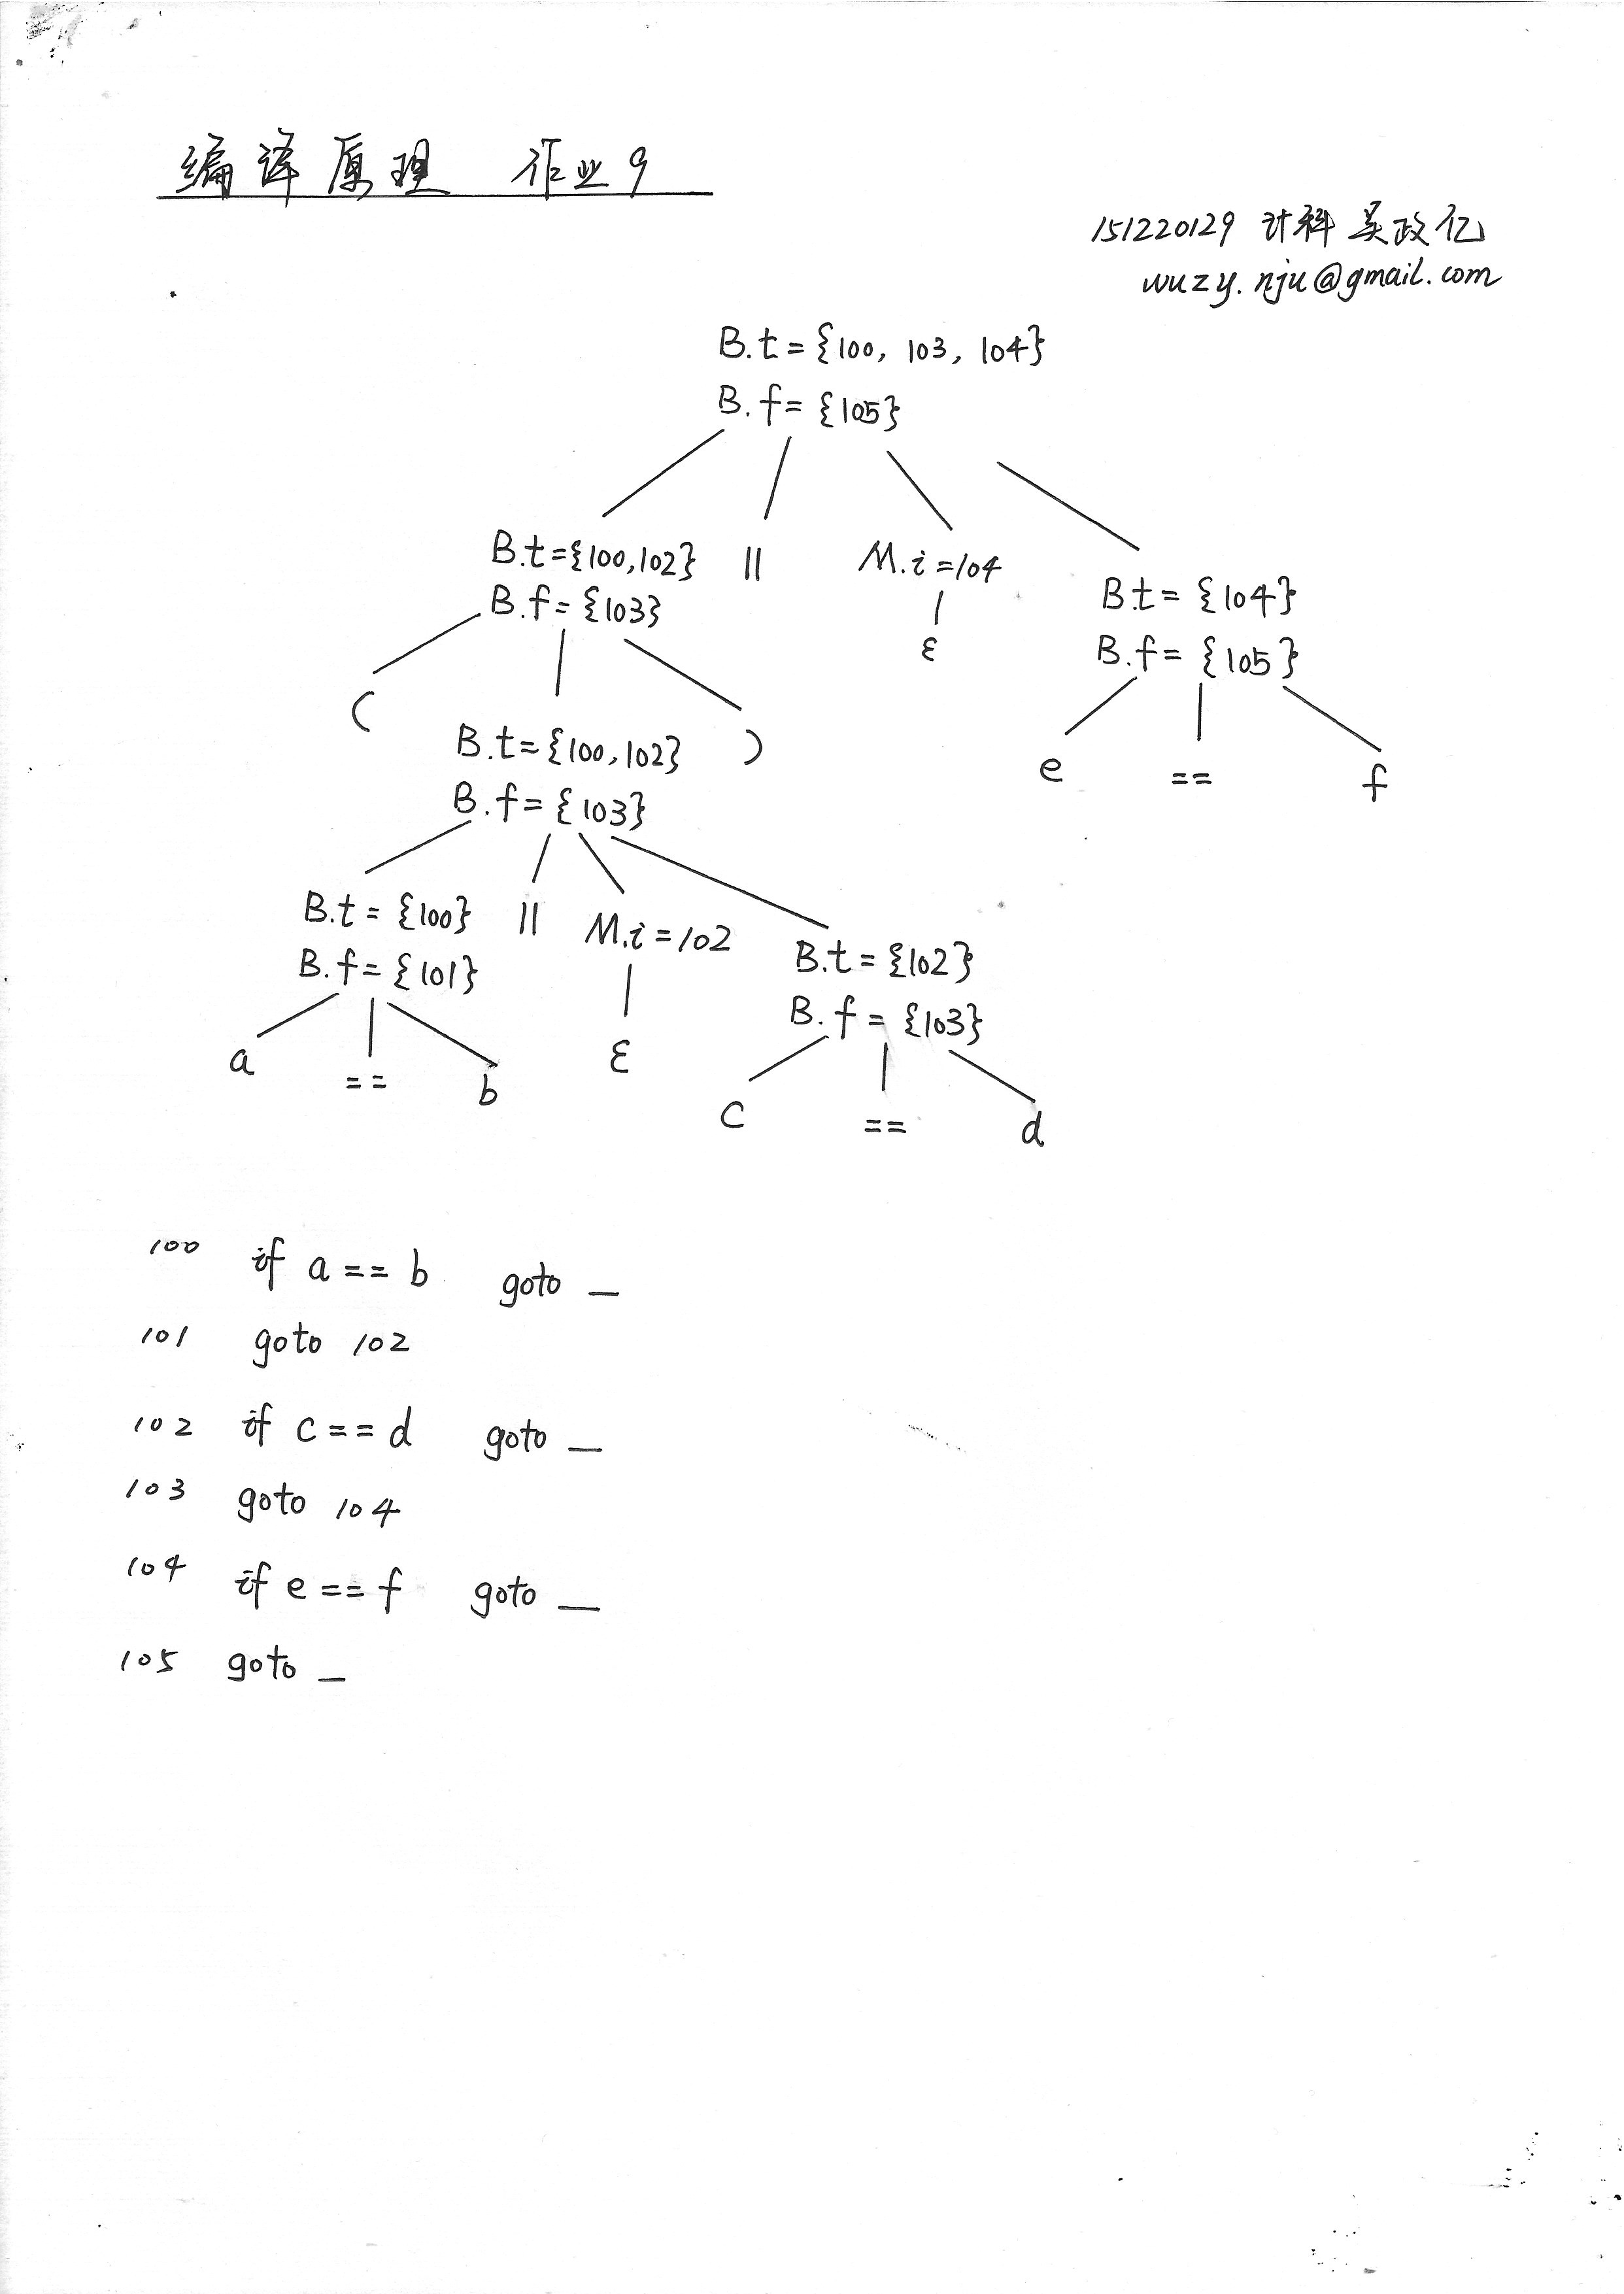 编译原理 作业9
151220129 计科 吴政亿
wuzy.nju@gmail.com
B.t={100, 103, 104}
B.f={105}
B.t={100,102} || M.i=104
B.f={103} B.t={104}
ε B.f={105}
( )
B.t={100,102} e == f
B.f={103}
B.t={100} || M.i=102 B.t={102}
B.f={101} B.f={103}
a == b ε
c == d
100 if a==b goto _
101 goto 102
102 if c==d goto _
103 goto 104
104 if e==f goto _
105 goto _